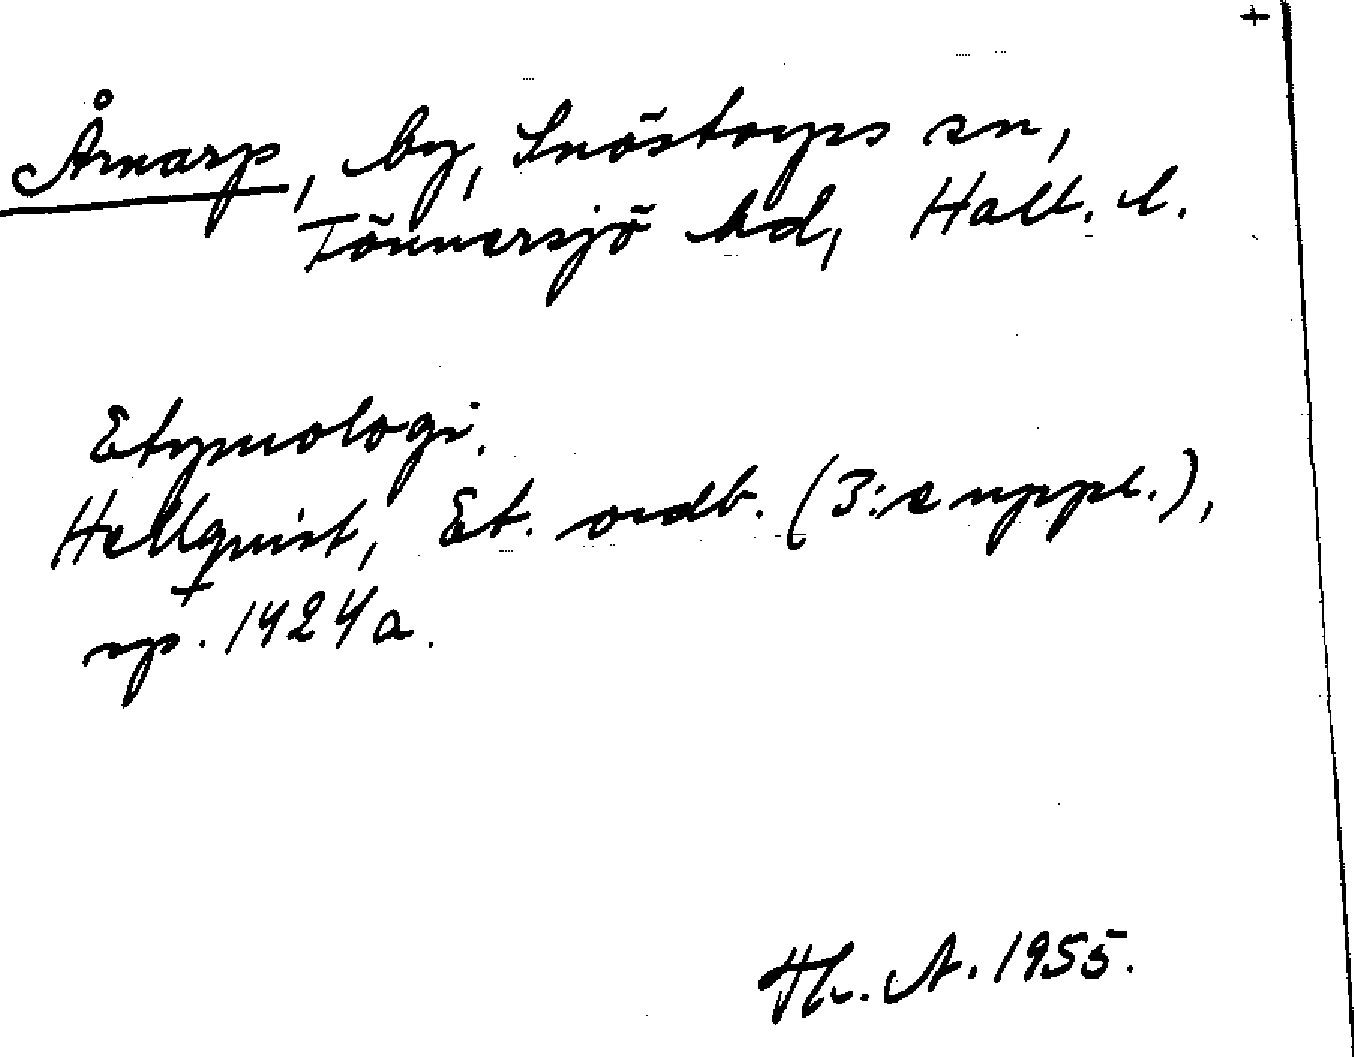 +
Årnarp, by, Snöstorps sn,
Tönnersjö hd, Hall. l.
Etymologi.
Hellquist, Et. ordb. (3:e uppl.),
sp. 1424 a.
Th. A. 1955.